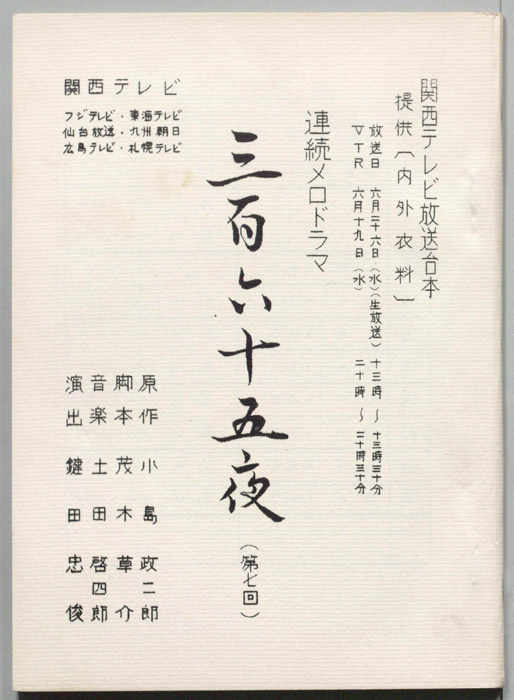 関西テレビ放送台本
提供〔内外衣料〕
放送日 六月二十六日（水）（生放送） 十三時～十三時三十分
VTR 六月十九日（水） 二十時～二十時三十分
連続メロドラマ
三百六十五夜
（第七回）
関西テレビ
フジテレビ・東海テレビ
仙台放送・九州朝日
広島テレビ・札幌テレビ
原作 小島政二郎
脚本 茂木草介
音楽 土田啓四郎
演出 鍵田忠俊